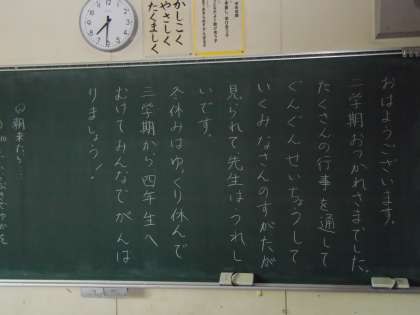 おはようございます。
二学期おつかれさまでした。
たくさんの行事を通して
ぐんぐんせいちょうして
いくみなさんのすがたが
見られて先生はうれし
いです。
冬休みはゆっくり休んで
三学期から四年生へ
むけてみんなでがんば
りましょう！
朝来たら…
かしこく
やさしく
たくましく